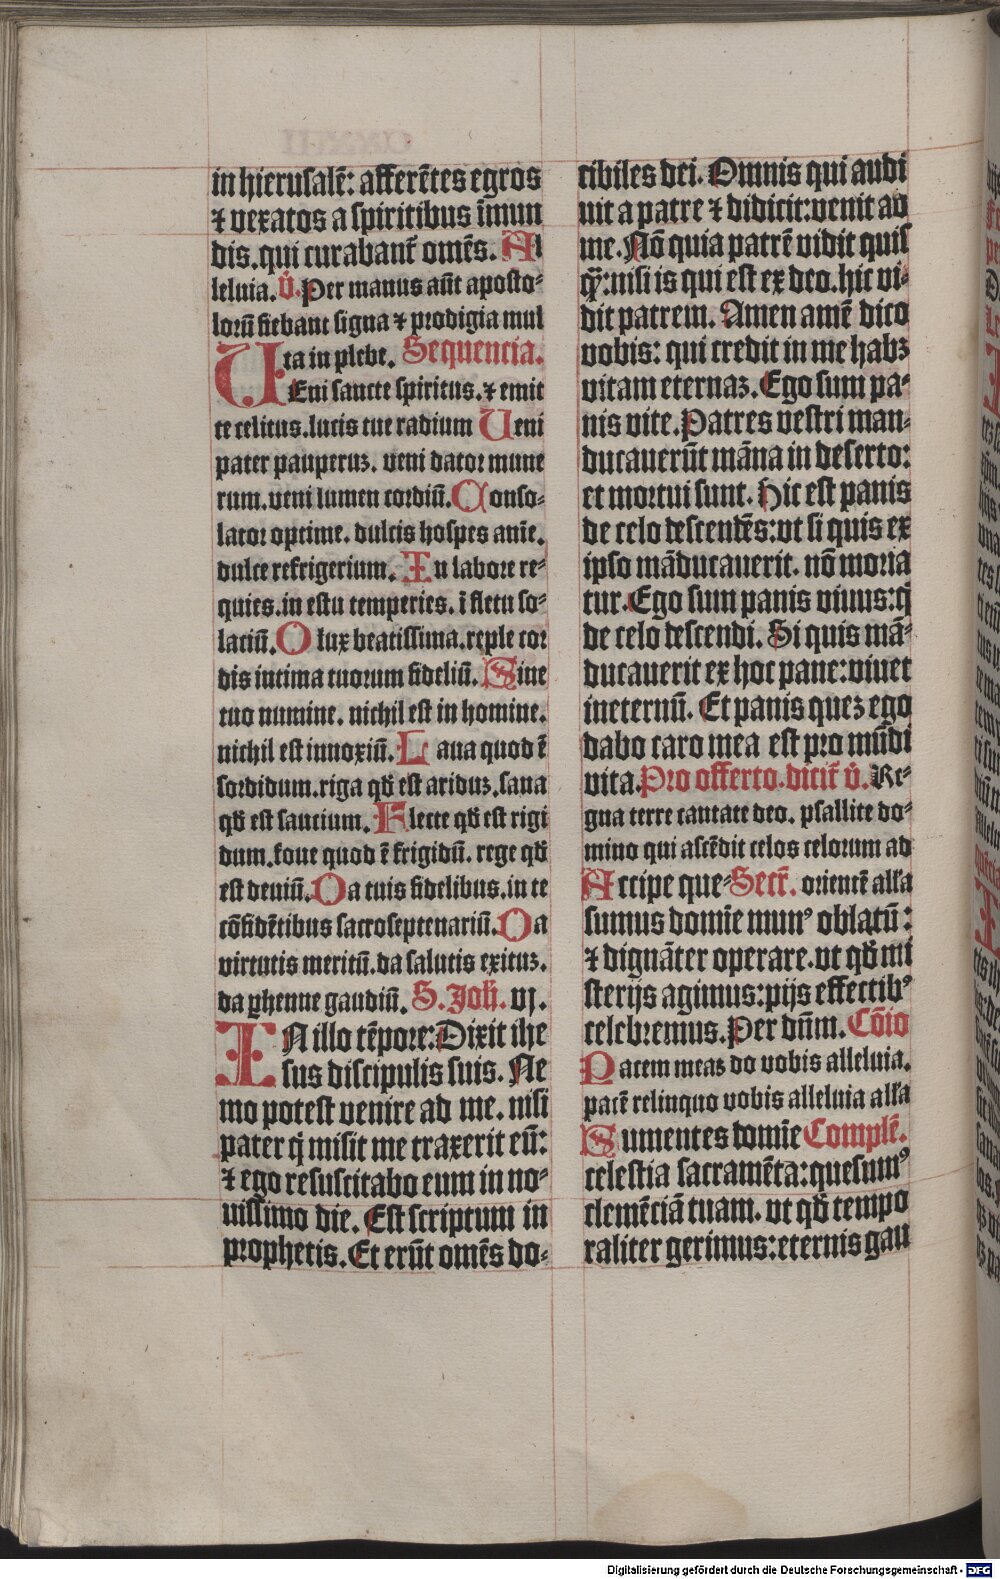 in hierusalē: afferētes egros
⁊ vexatos a spiritibus īmun
dis. qui curabant᷑ omēs. Al
leluia. v̄. Per manus aūt aposto-
lorū fiebant signa ⁊ prodigia mul
ta in plebe. Sequencia.
VEni sancte spiritus. ⁊ emit
te celitus. lucis tue radium Veni
pater pauperuꝫ. veni dator mune
rum. veni lumen cordiū. Conso-
lator optime. dulcis hospes anīe.
dulce refrigerium. In labore re-
quies. in estu temperies. ī fletu so-
laciū. O lux beatissima. reple cor
dis intima tuorum fideliū. Sine
tuo numine. nichil est in homine.
nichil est innoxiū. Laua quod ē
sordidum. riga qđ est ariduꝫ. sana
qđ est saucium. Flecte qđ est rigi
dum. foue quod ē frigidū. rege qđ
est deuiū. Da tuis fidelibus. in te
cōfidētibus sacroseptenariū. Da
virtutis meritū. da salutis exituꝫ.
da ꝑhenne gaudiū. S. Joh̄. vj.
IN illo tēpore: Dixit ihe
sus discipulis suis. Ne
mo potest venire ad me. nisi
pater q̄ misit me traxerit eū:
⁊ ego resuscitabo eum in no-
uissimo die. Est scriptum in
prophetis. Et erūt omēs do-
cibiles dei. Omnis qui audi
uit a patre ⁊ didicit: venit ad
me. Nō quia patrē vidit quis
q̄ꝫ: nisi is qui est ex deo. hic vi-
dit patrem. Amen amē dico
vobis: qui credit in me habꝫ
vitam eternaꝫ. Ego sum pa-
nis vite. Patres vestri man-
ducauerūt māna in deserto:
et mortui sunt. Hic est panis
de celo descendēs: vt si quis ex
ipso māducauerit. nō moria
tur. Ego sum panis viuus: q̄
de celo descendi. Si quis mā-
ducauerit ex hoc pane: viuet
ineternū. Et panis queꝫ ego
dabo caro mea est pro mūdi
vita. Pro offerto. dicit᷑ v̄. Re-
gna terre cantate deo. psallite do-
mino qui ascēdit celos celorum ad
Accipe que- Secr̄. orientē alľa
sumus domīe munꝰ oblatū:
⁊ dignāter operare. vt qđ mi
sterijs agimus: pijs effectibꝰ
celebremus. Per dūm. Cōio
Pacem meaꝫ do vobis alleluia.
pacē relinquo vobis alleluia alľa
Sumentes domīe Complē.
celestia sacramēta: quesumꝰ
clemēciā tuam. vt qđ tempo
raliter gerimus: eternis gau
Digitalisierung gefördert durch die Deutsche Forschungsgemeinschaft - DFG